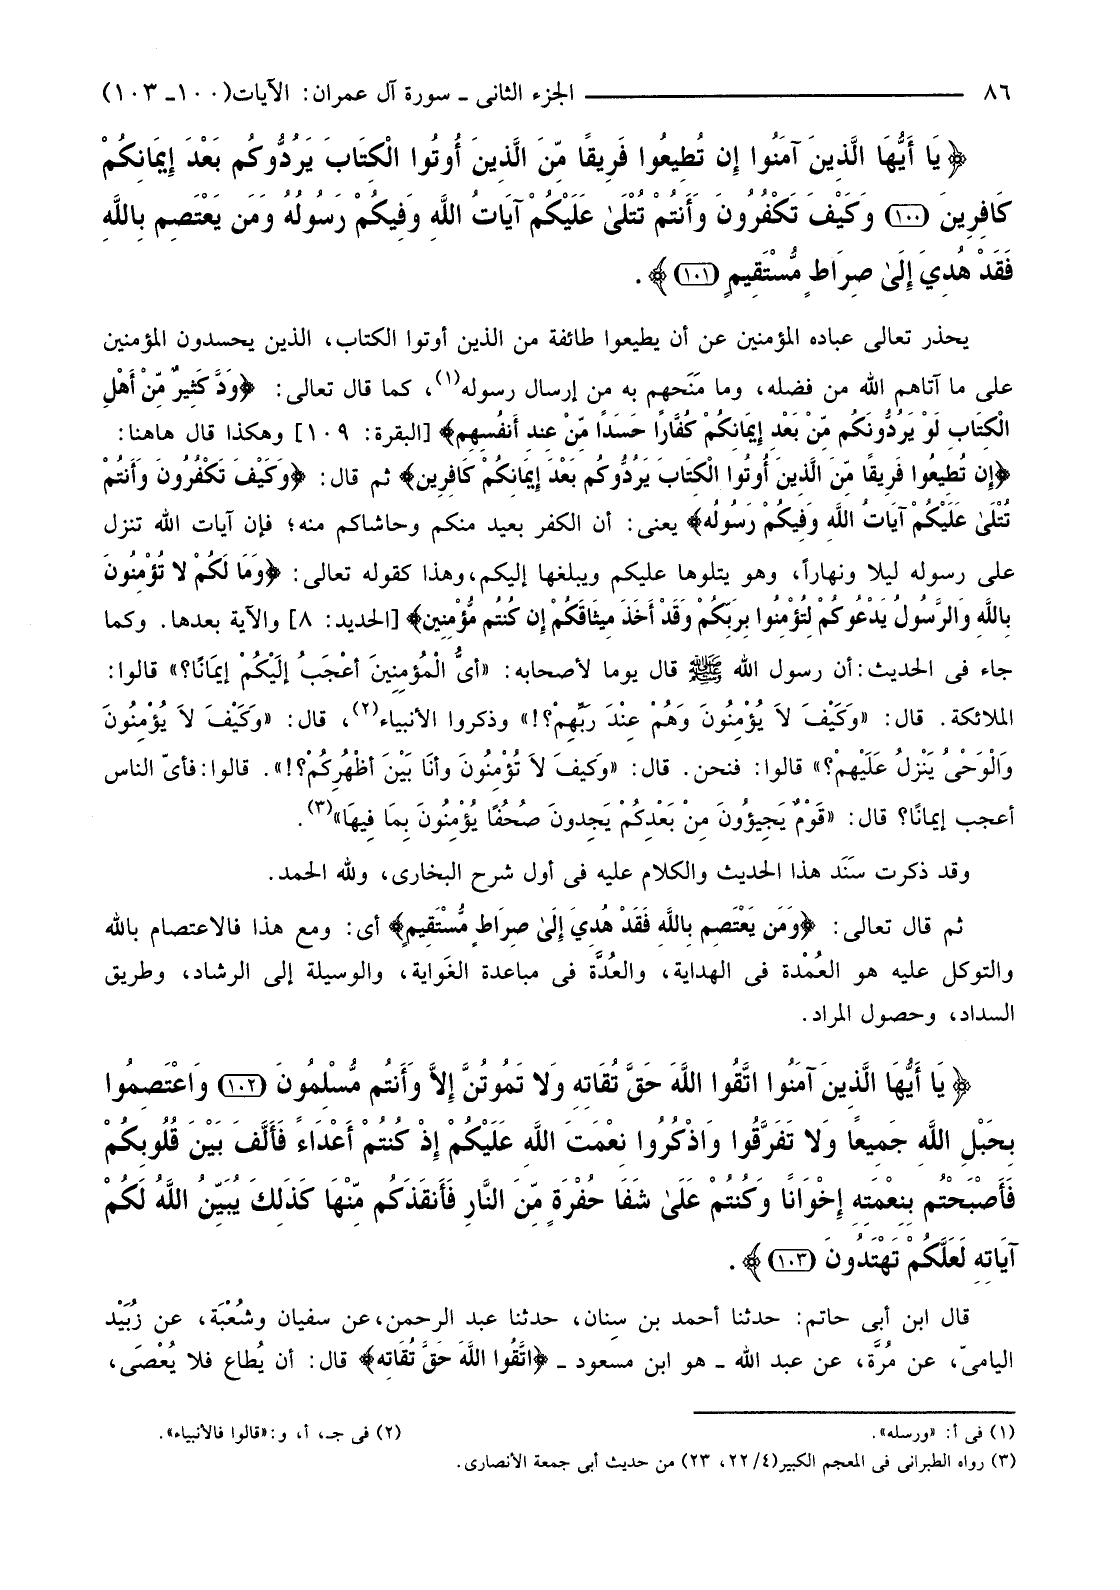 ٨٦ ـــــــــــــــــــــ الجزء الثانى ـ سورة آل عمران: الآيات(١٠٠ـ ١٠٣)
﴿ يَا أَيُّهَا الَّذِينَ آمَنُوا إِن تُطِيعُوا فَرِيقًا مِّنَ الَّذِينَ أُوتُوا الْكِتَابَ يَرُدُّوكُم بَعْدَ إِيمَانِكُمْ
كَافِرِينَ (١٠٠) وَكَيْفَ تَكْفُرُونَ وَأَنتُمْ تُتْلَىٰ عَلَيْكُمْ آيَاتُ اللَّهِ وَفِيكُمْ رَسُولُهُ وَمَن يَعْتَصِم بِاللَّهِ
فَقَدْ هُدِيَ إِلَىٰ صِرَاطٍ مُّسْتَقِيمٍ (١٠١) ﴾ .
يحذر تعالى عباده المؤمنين عن أن يطيعوا طائفة من الذين أوتوا الكتاب، الذين يحسدون المؤمنين
على ما آتاهم الله من فضله، وما مَنَحهم به من إرسال رسوله(١)، كما قال تعالى: ﴿وَدَّ كَثِيرٌ مِّنْ أَهْلِ
الْكِتَابِ لَوْ يَرُدُّونَكُم مِّنْ بَعْدِ إِيمَانِكُمْ كُفَّارًا حَسَدًا مِّنْ عِندِ أَنفُسِهِم﴾ [البقرة: ١٠٩] وهكذا قال هاهنا:
﴿إِن تُطِيعُوا فَرِيقًا مِّنَ الَّذِينَ أُوتُوا الْكِتَابَ يَرُدُّوكُم بَعْدَ إِيمَانِكُمْ كَافِرِين﴾ ثم قال: ﴿وَكَيْفَ تَكْفُرُونَ وَأَنتُمْ
تُتْلَىٰ عَلَيْكُمْ آيَاتُ اللَّهِ وَفِيكُمْ رَسُولُه﴾ يعنى: أن الكفر بعيد منكم وحاشاكم منه؛ فإن آيات الله تنزل
على رسوله ليلا ونهاراً، وهو يتلوها عليكم ويبلغها إليكم،وهذا كقوله تعالى: ﴿وَمَا لَكُمْ لا تُؤْمِنُونَ
بِاللَّهِ وَالرَّسُولُ يَدْعُوكُمْ لِتُؤْمِنُوا بِرَبِّكُمْ وَقَدْ أَخَذَ مِيثَاقَكُمْ إِن كُنتُم مُّؤْمِنِين﴾ [الحديد: ٨] والآية بعدها. وكما
جاء فى الحديث:أن رسول الله ﷺ قال يوما لأصحابه: «أىُّ الْمُؤمِنِينَ أعْجَبُ إِلَيْكُمْ إيمَانًا؟» قالوا:
الملائكة. قال: «وَكَيْفَ لاَ يُؤْمِنُونَ وَهُمْ عِنْدَ رَبِّهِمْ؟!» وذكروا الأنبياء(٢)، قال: «وَكَيْفَ لاَ يُؤْمِنُونَ
وَالْوَحْىُ يَنْزِلُ عَلَيْهِمْ؟» قالوا: فنحن. قال: «وَكيفَ لاَ تُؤْمِنُونَ وأنَا بَيْنَ أظْهُرِكُمْ؟!». قالوا:فأىّ الناس
أعجب إيمانًا؟ قال: «قَوْمٌ يَجِيؤُونَ مِنْ بَعْدِكُمْ يَجِدونَ صُحُفًا يُؤْمِنُونَ بِمَا فِيهَا»(٣).
وقد ذكرت سَنَد هذا الحديث والكلام عليه فى أول شرح البخارى، ولله الحمد.
ثم قال تعالى: ﴿وَمَن يَعْتَصِم بِاللَّهِ فَقَدْ هُدِيَ إِلَىٰ صِرَاطٍ مُّسْتَقِيم﴾ أى: ومع هذا فالاعتصام بالله
والتوكل عليه هو العُمْدة فى الهداية، والعُدَّة فى مباعدة الغَواية، والوسيلة إلى الرشاد، وطريق
السداد، وحصول المراد.
﴿ يَا أَيُّهَا الَّذِينَ آمَنُوا اتَّقُوا اللَّهَ حَقَّ تُقَاتِهِ وَلا تَمُوتُنَّ إِلاَّ وَأَنتُم مُّسْلِمُونَ (١٠٢) وَاعْتَصِمُوا
بِحَبْلِ اللَّهِ جَمِيعًا وَلا تَفَرَّقُوا وَاذْكُرُوا نِعْمَتَ اللَّهِ عَلَيْكُمْ إِذْ كُنتُمْ أَعْدَاءً فَأَلَّفَ بَيْنَ قُلُوبِكُمْ
فَأَصْبَحْتُم بِنِعْمَتِهِ إِخْوَانًا وَكُنتُمْ عَلَىٰ شَفَا حُفْرَةٍ مِّنَ النَّارِ فَأَنقَذَكُم مِّنْهَا كَذَلِكَ يُبَيِّنُ اللَّهُ لَكُمْ
آيَاتِهِ لَعَلَّكُمْ تَهْتَدُونَ (١٠٣) ﴾ .
قال ابن أبى حاتم: حدثنا أحمد بن سِنان، حدثنا عبد الرحمن،عن سفيان وشُعْبَة، عن زُبَيْد
الياميّ، عن مُرَّة، عن عبد الله ـ هو ابن مسعود ـ ﴿اتَّقُوا اللَّهَ حَقَّ تُقَاتِه﴾ قال: أن يُطاع فلا يُعْصَى،
(١) فى أ: «ورسله». (٢) فى جـ، أ، و:«قالوا فالأنبياء».
(٣) رواه الطبرانى فى المعجم الكبير(٢٢/٤، ٢٣) من حديث أبى جمعة الأنصارى.